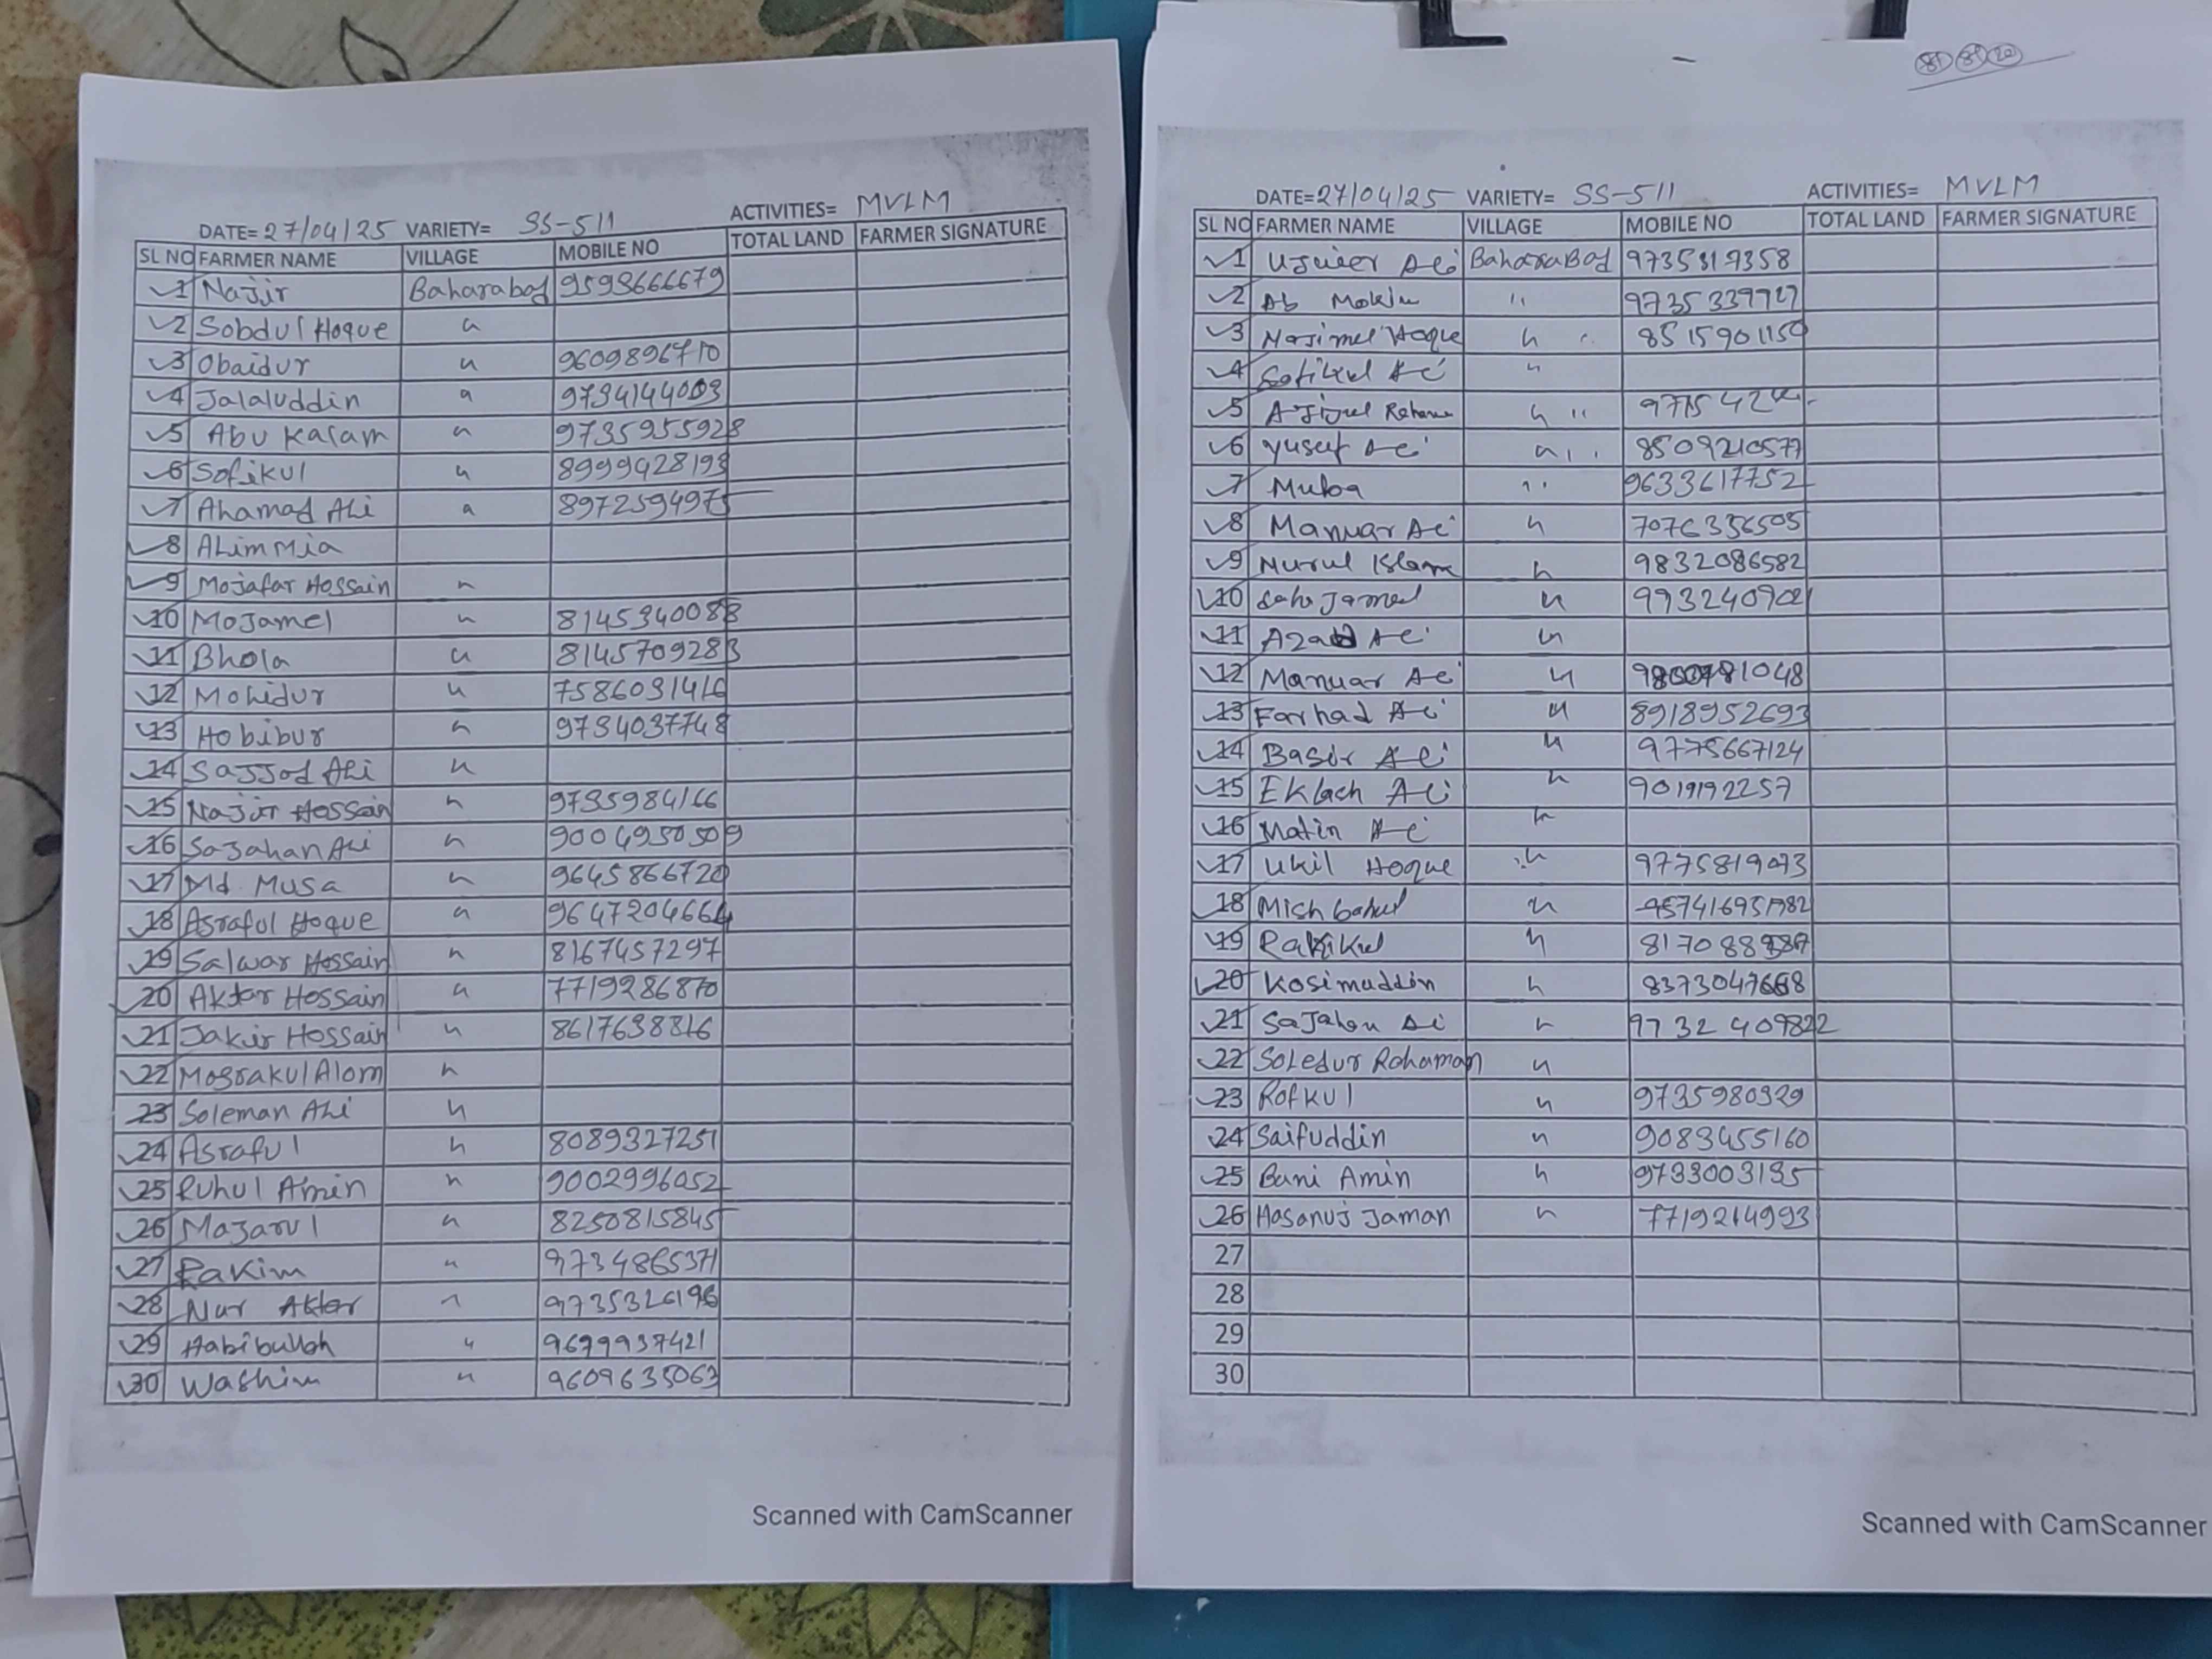 DATE= 27/04/25 VARIETY= SS-511 ACTIVITIES= MVLM
SL NO FARMER NAME VILLAGE MOBILE NO TOTAL LAND FARMER SIGNATURE
1 Najir Baharabad 9593666679
2 Sobdul Hoque "
3 Obaidur " 9609896710
4 Jalaluddin " 9734144003
5 Abu Kalam " 9735955928
6 Sofikul " 8999428193
7 Ahamad Ali " 8972594975
8 ALim Mia
9 Mojafar Hossain "
10 Mojamel " 8145340088
11 Bhola " 8145709283
12 Mohidur " 7586031416
13 Hobibur " 9734037748
14 Sajjod Ali "
15 Najir Hossain " 9735984166
16 Sajahan Ali " 9004950509
17 Md. Musa " 9645866720
18 Asraful Hoque " 9647204664
19 Salwar Hossain " 8167457297
20 Aktar Hossain " 7719286870
21 Jakir Hossain " 8617638816
22 Mosrakul Alom "
23 Soleman Ali "
24 Asraful " 8089327251
25 Ruhul Amin " 9002996052
26 Mazarul " 8250815845
27 Rakim " 9734865371
28 Nur Aktar " 9735326196
29 Habibullah " 9679937421
30 Washim " 9609635063
Scanned with CamScanner
DATE=27/04/25 VARIETY= SS-511 ACTIVITIES= MVLM
SL NO FARMER NAME VILLAGE MOBILE NO TOTAL LAND FARMER SIGNATURE
1 Ali BaharaBad
2 Ab Mokim " 9735339727
3 Hoque " 8515901150
4 Sofikul Ali "
5 Ajijul "
6 Yusuf Ali " 8509210577
7 " 9633617752
8 Manuar Ali " 7076336505
9 Nurul Islam " 9832086582
10 Saha Jamal "
11 Azad Ali "
12 Manuar Ali "
13 Farhad Ali " 8918952693
14 Basir Ali " 9775667124
15 Eklach Ali " 9019192257
16 Matin Ali "
17 Ukil Hoque " 9775819073
18 Mishbahul "
19 Rakikul "
20 Kosimuddin "
21 Sajahan Ali " 9732409822
22 Soledur Rohaman "
23 Rofkul " 9735980329
24 Saifuddin " 9083455160
25 Bani Amin " 9733003135
26 Hasanuj Jaman " 7719214993
27
28
29
30
Scanned with CamScanner